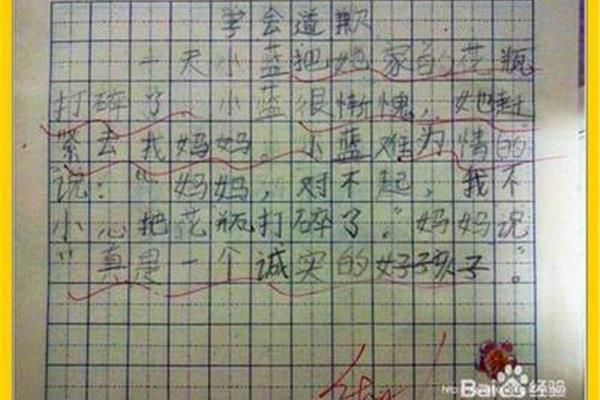 学会道歉
一天小蓝把她家的花瓶
打碎了,小蓝很惭愧,她赶
紧去找妈妈。小蓝难为情的
说:“妈妈,对不起,我不
小心把花瓶打碎了。”妈妈说
“真是一个诚实的好孩子”。
Baidu经验